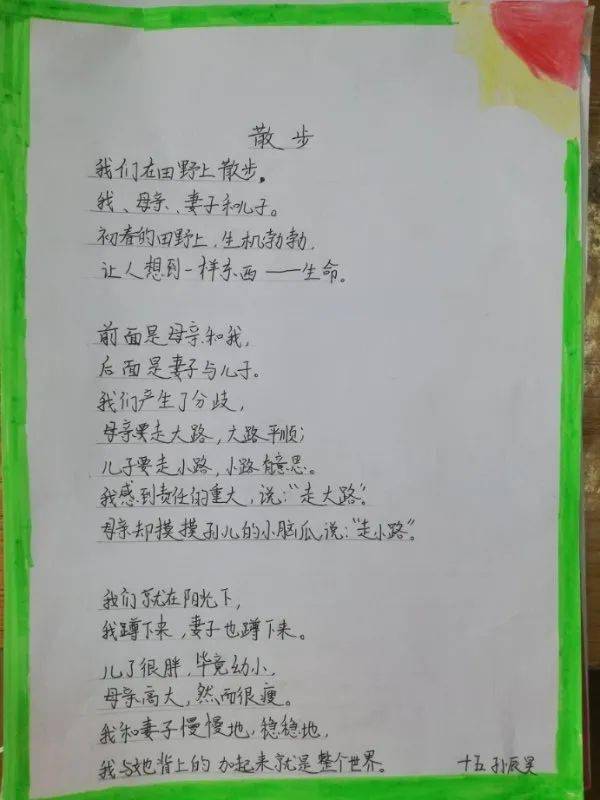 散步
我们在田野上散步。
我、母亲、妻子和儿子。
初春的田野上，生机勃勃，
让人想到一样东西——生命。
前面是母亲和我，
后面是妻子与儿子。
我们产生了分歧，
母亲要走大路，大路平顺；
儿子要走小路，小路有意思。
我感到责任的重大，说：“走大路”。
母亲却摸摸孙儿的小脑瓜，说：“走小路”。
我们就在阳光下，
我蹲下来，妻子也蹲下来。
儿子很胖，毕竟幼小，
母亲高大，然而很瘦。
我和妻子慢慢地，稳稳地，
我与她背上的加起来就是整个世界。
十五 孙辰昊